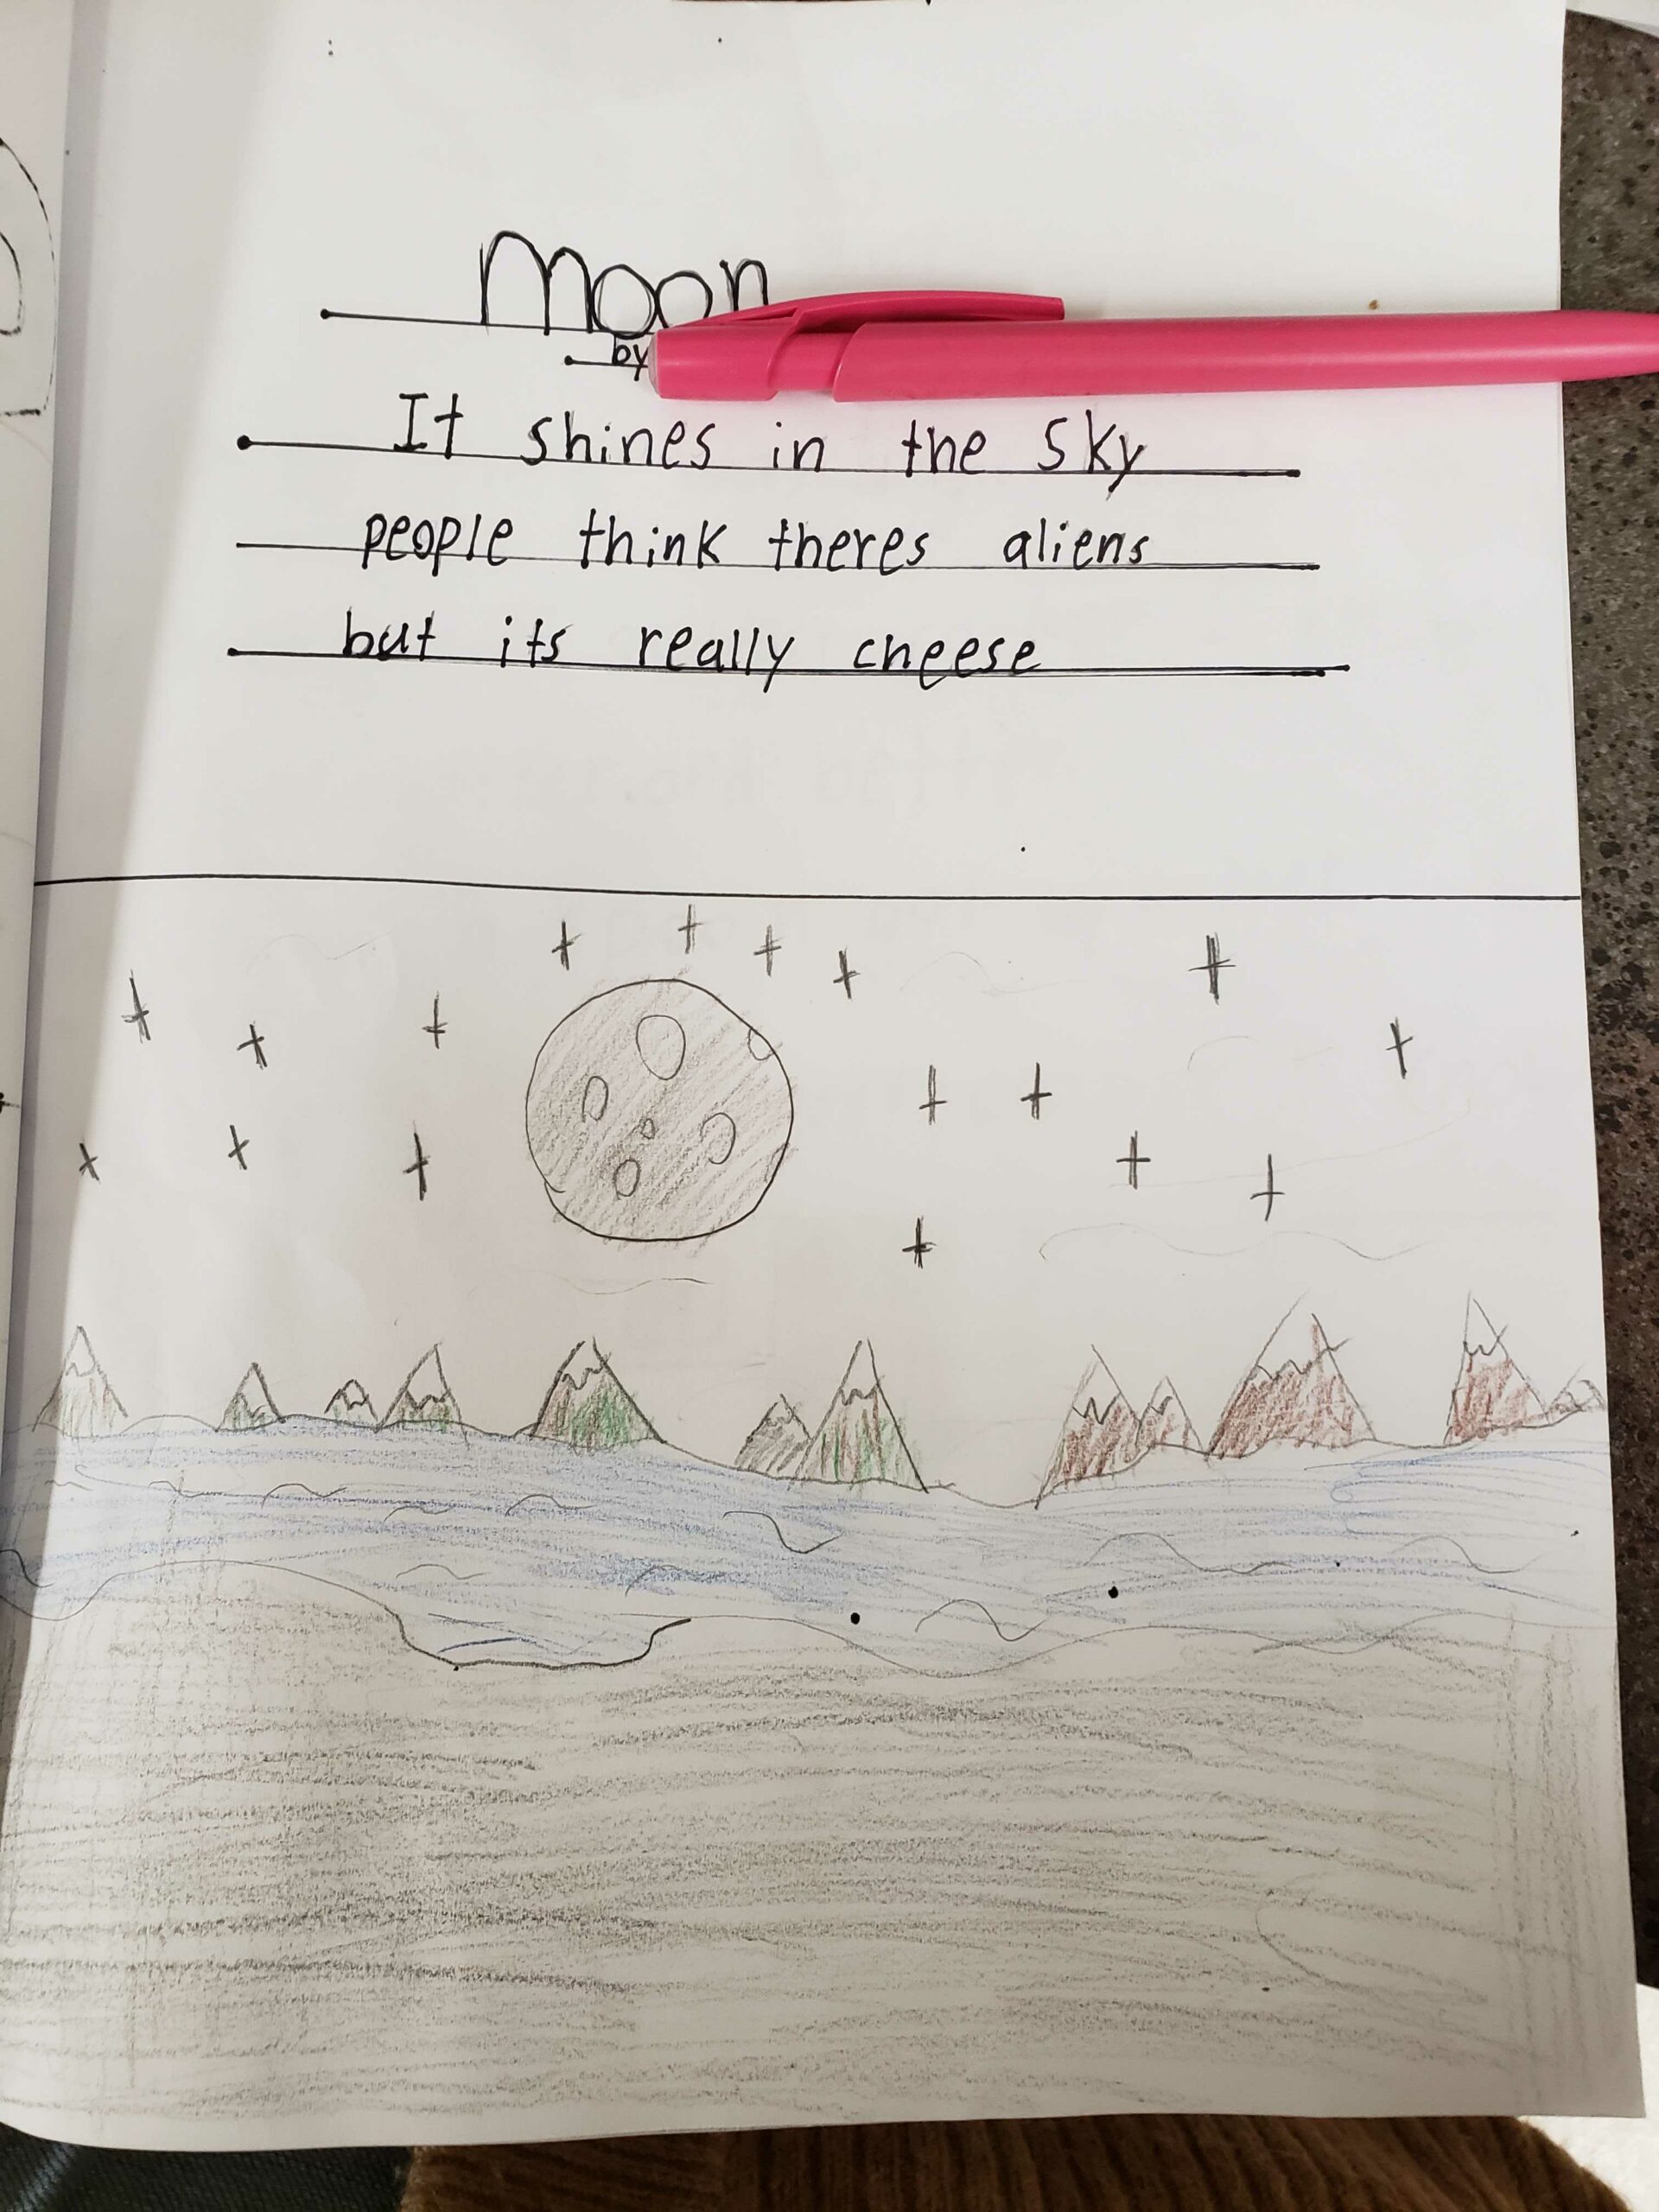 Moon
by
It shines in the sky
people think theres aliens
but its really cheese